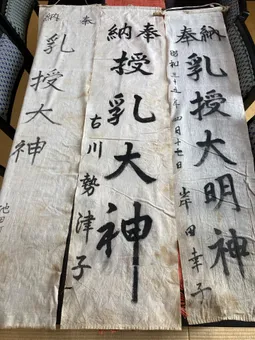 奉納
乳授大明神
昭和三十五年四月十七日
岸田幸子
奉納
授乳大神
古川勢津子
奉納
乳授大神